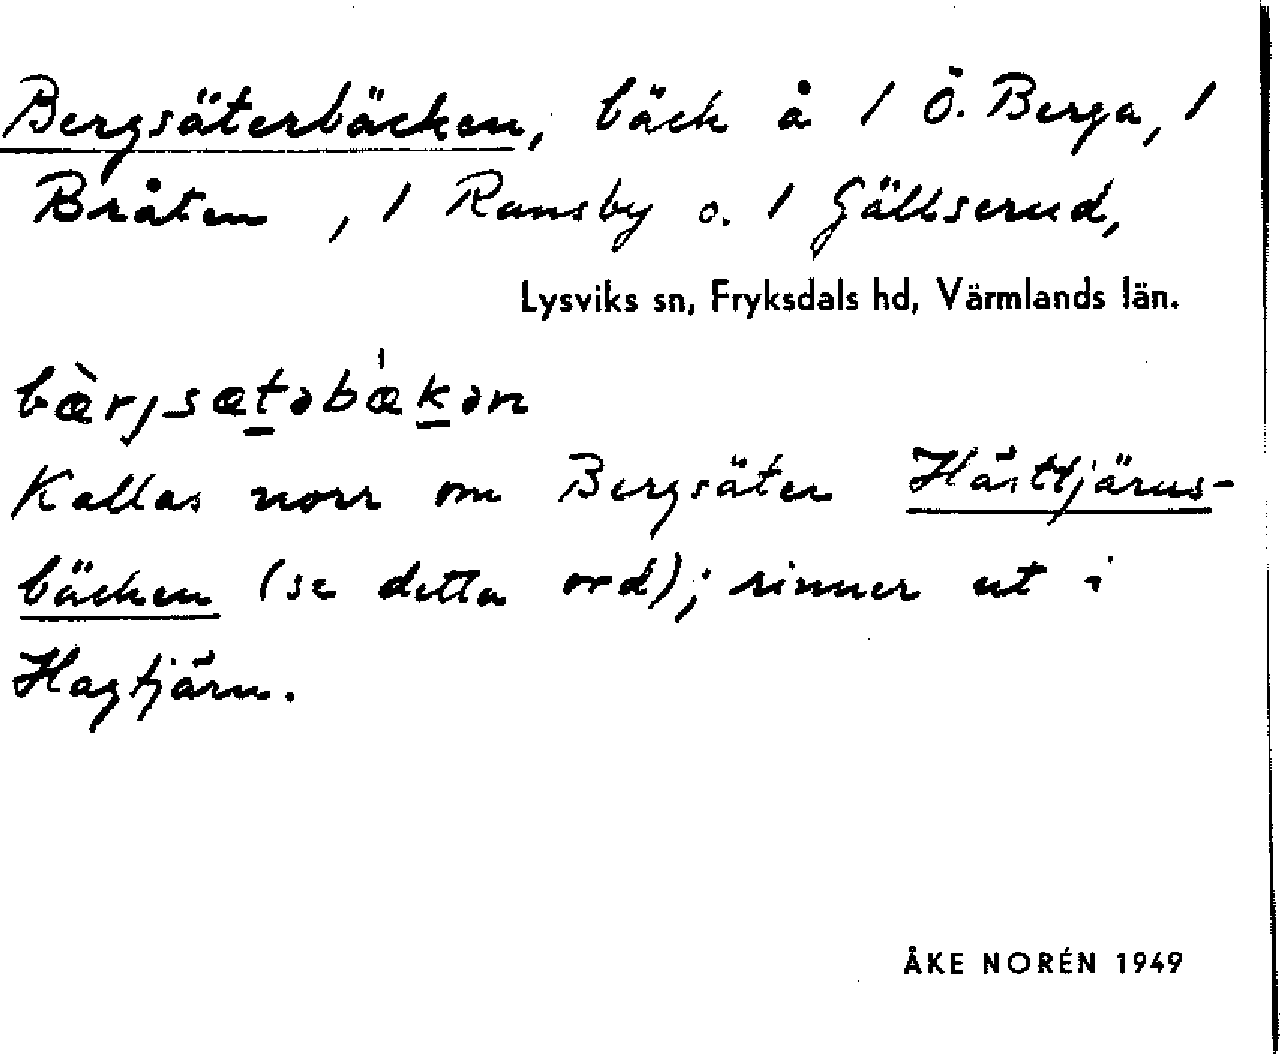 Bergsäterbäcken, bäck å 1 Ö. Berga, 1
Bråten, 1 Ransby o. 1 Gällserud,
Lysviks sn, Fryksdals hd, Värmlands län.
bæ̀rjsæt̲əbæ̍k̲ən
Kallas norr om Bergsäter Hästtjärns-
bäcken (se detta ord); rinner ut i
Hagtjärn.
ÅKE NORÉN 1949